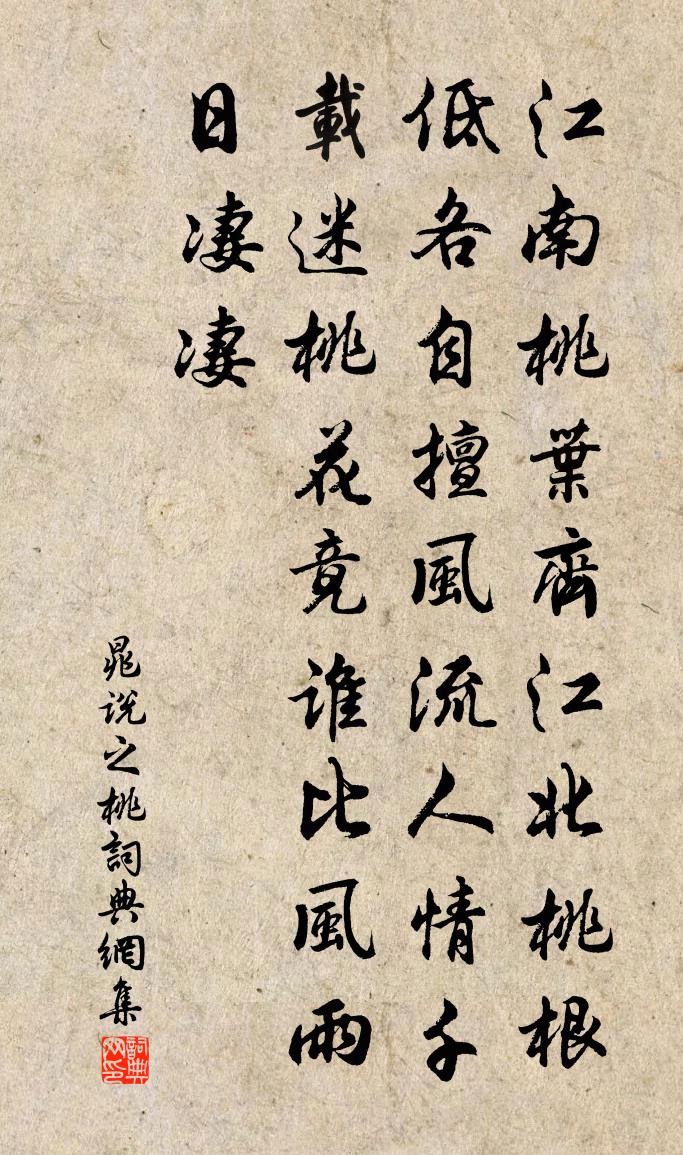 江南桃葉齊江北桃根
低各自擅風流人情千
載迷桃花竟誰比風雨
日凄凄
晁説之桃詞典網集
詞典網印